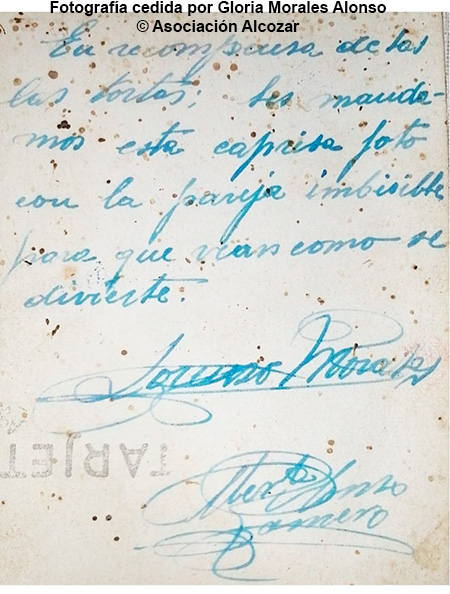 Fotografía cedida por Gloria Morales Alonso
© Asociación Alcozar
En recompensa de las
las tortas; les manda-
mos esta caprisa foto
con la pareja imbisible
para que veas como se
divierte.
Lorenzo Morales
TARJET
Alonso
Romero